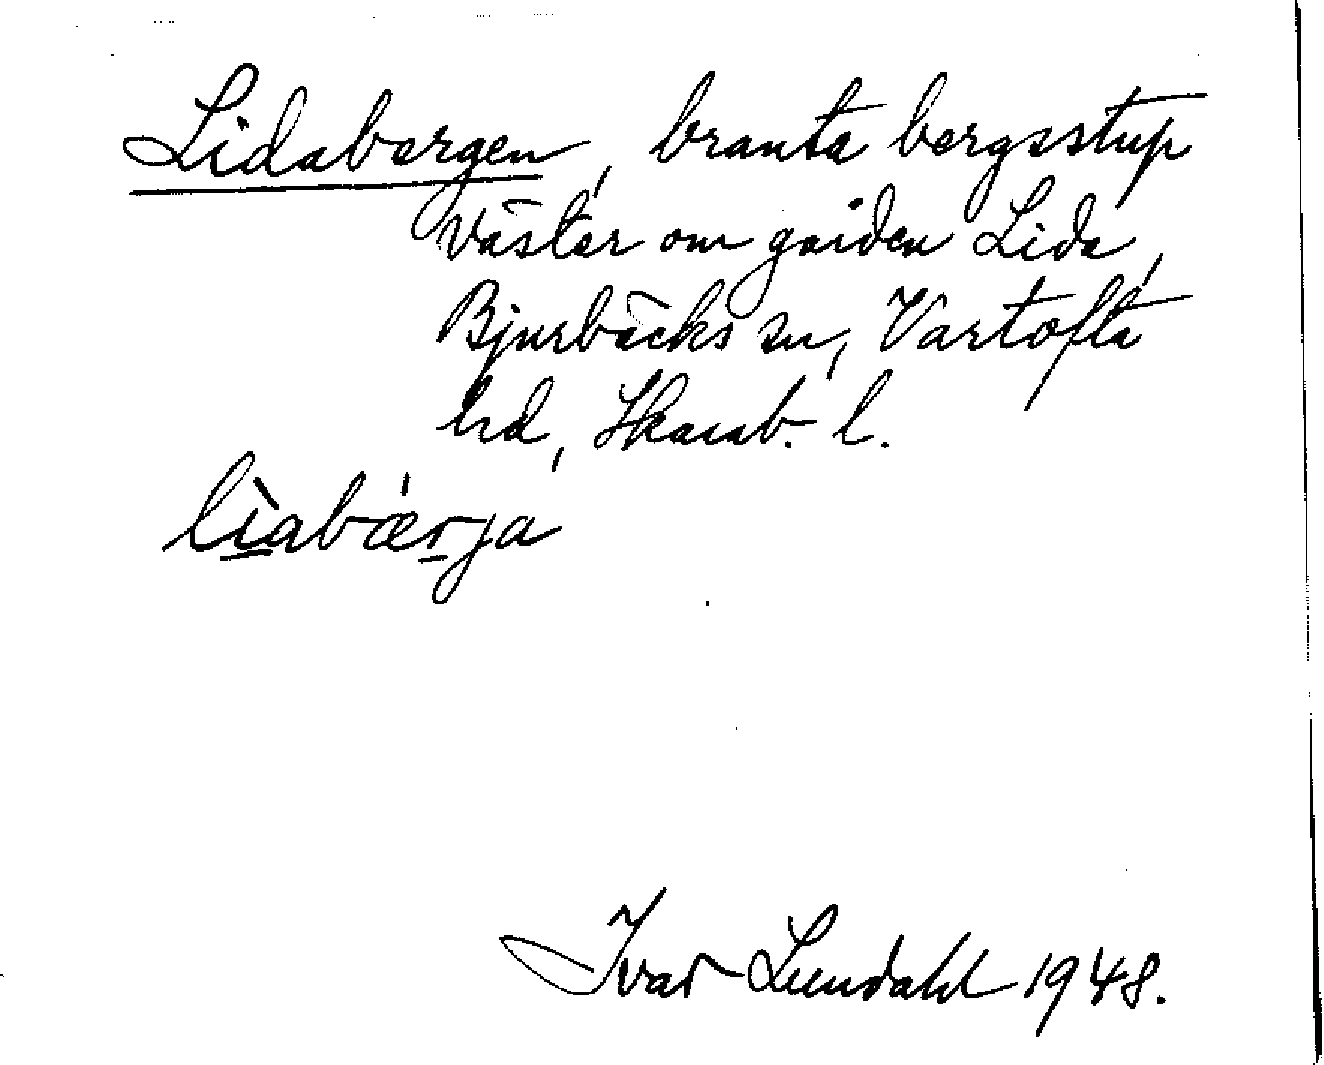 Lidabergen, branta bergsstup
väster om gården Lida,
Bjurbäcks sn, Vartofta
hd, Skarab. l.
lìabǽrja
Ivar Lundahl 1948.